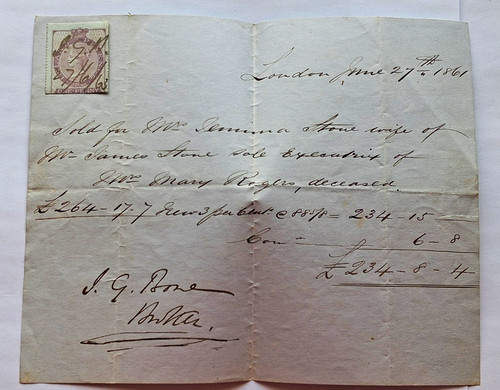 London June 27th 1861
Sold for Mrs Jemima Stone wife of
Mr James Stone sole Executrix of
Mrs Mary Rogers, deceased.
£264-17.7 New 3 per Cent. @ 88 5/8 = 234-15-
Com- 6-8
£234-8-4
J. G. Bone
Broker.